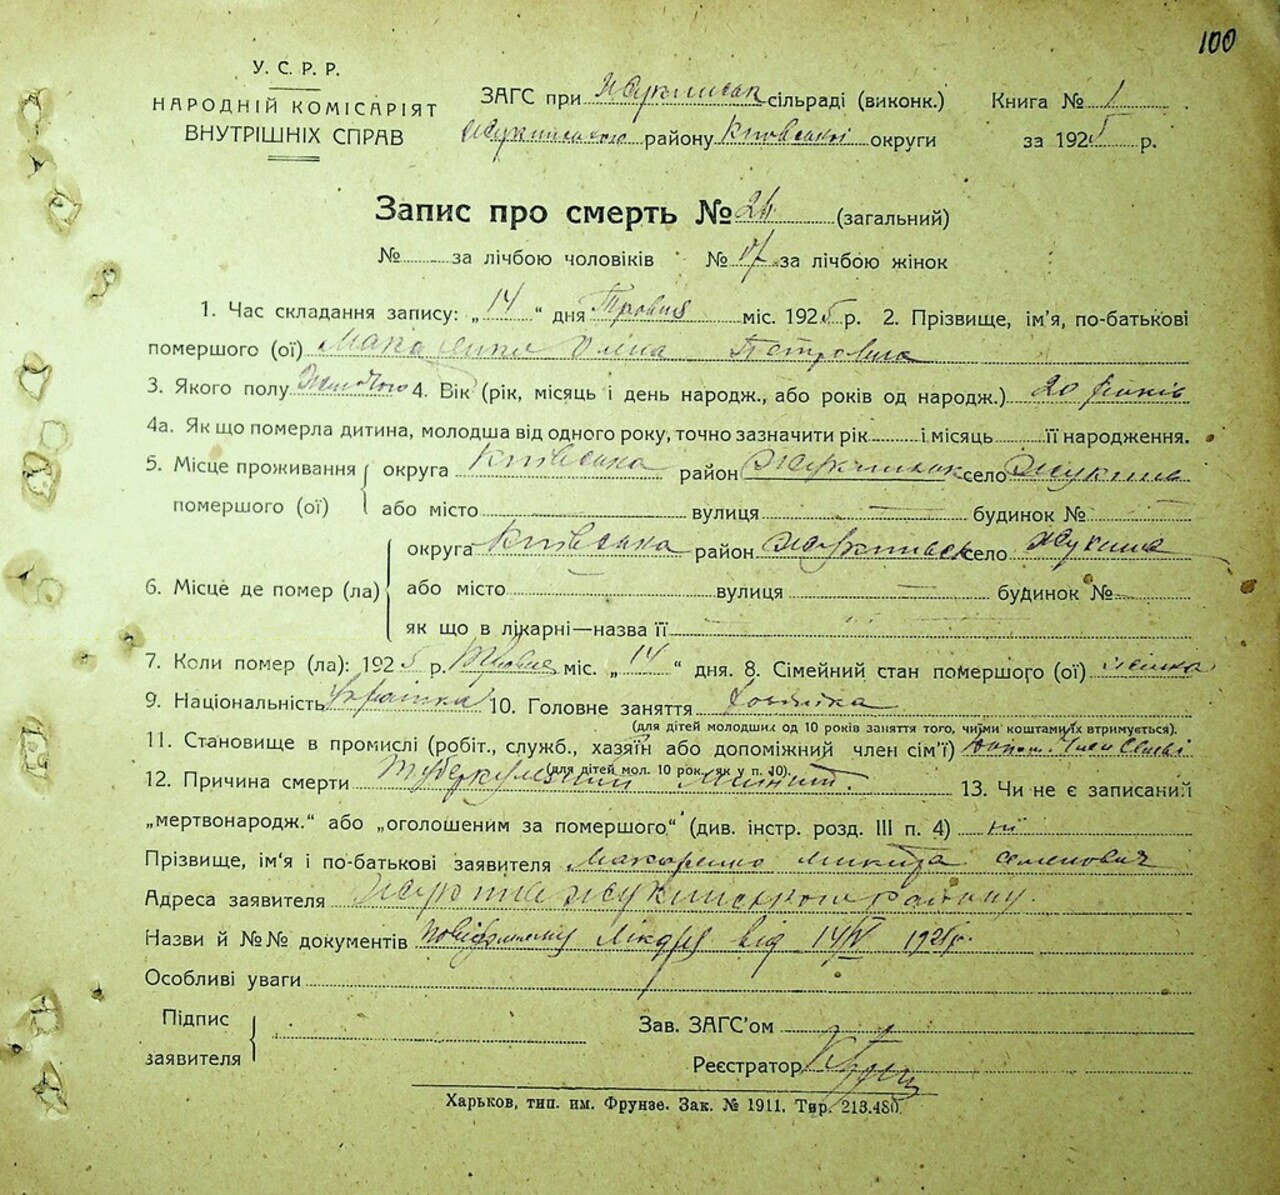 100
У. С. Р. Р.
НАРОДНІЙ КОМІСАРІЯТ
ВНУТРІШНІХ СПРАВ
ЗАГС при Жукинськ сільраді (виконк.)
Жукинського району Київської округи
Книга № 1
за 1925 р.
Запис про смерть № (загальний)
№ за лічбою чоловіків № 17 за лічбою жінок
1. Час складання запису: „14“ дня Травня міс. 1925 р. 2. Прізвище, ім'я, по-батькові
помершого (ої) Петровна
3. Якого полу 4. Вік (рік, місяць і день народж., або років од народж.) 20 років
4а. Як що померла дитина, молодша від одного року, точно зазначити рік і місяць її народження.
5. Місце проживання помершого (ої) округа Київська район Жукинськ село Жукина
або місто вулиця будинок №
6. Місце де помер (ла) округа Київська район Жукинськ село Жукина
або місто вулиця будинок №
як що в лікарні—назва її
7. Коли помер (ла): 1925 р. Травня міс. „14“ дня. 8. Сімейний стан помершого (ої)
9. Національність Українка 10. Головне заняття
(для дітей молодших од 10 років заняття того, чиїми коштами їх втримується).
11. Становище в промислі (робіт., служб., хазяїн або допоміжний член сім'ї)
(для дітей мол. 10 рок., як у п. 10).
12. Причина смерти 13. Чи не є записаний
„мертвонародж.“ або „оголошеним за помершого“ (див. інстр. розд. III п. 4) ні
Прізвище, ім'я і по-батькові заявителя Макаренко Микита Семенович
Адреса заявителя Жукинського району.
Назви й №№ документів від 1925 р.
Особливі уваги
Підпис заявителя
Зав. ЗАГС'ом
Реєстратор
Харьков, тип. им. Фрунзе. Зак. № 1911. Тир. 213.480.